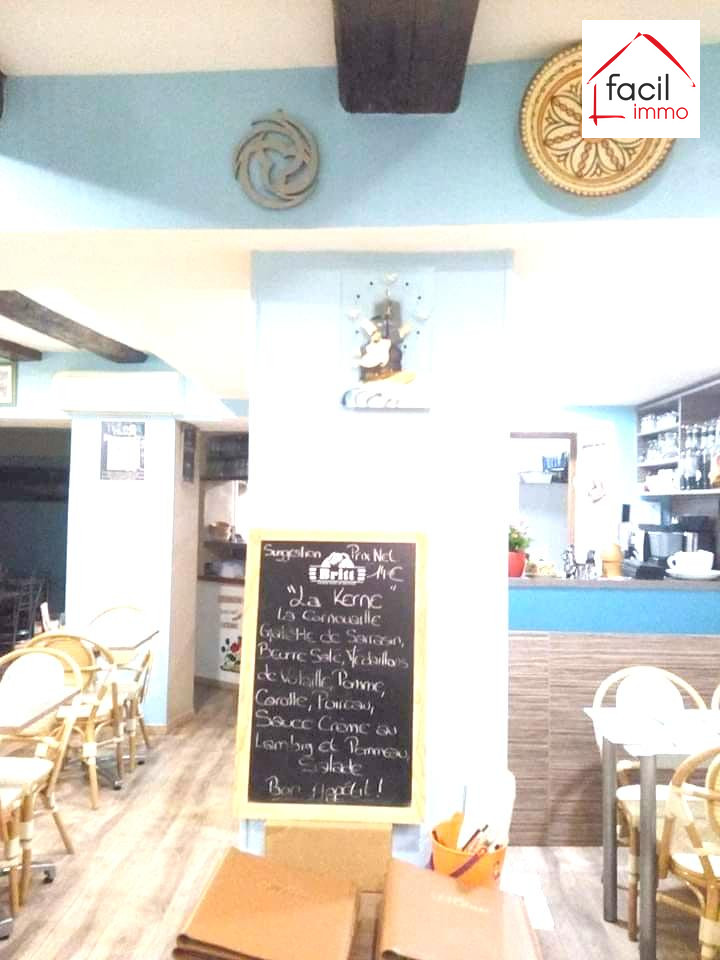 facil
immo
Suggestion Prix Net
Britt 14€
"La Kerne"
La Cornouaille
Galette de Sarrasin,
Beurre Salé, Médaillons
de Volaille, Pomme,
Carotte, Poireau,
Sauce Crème au
Lambig et Pommeau,
Salade
Bon Appétit!